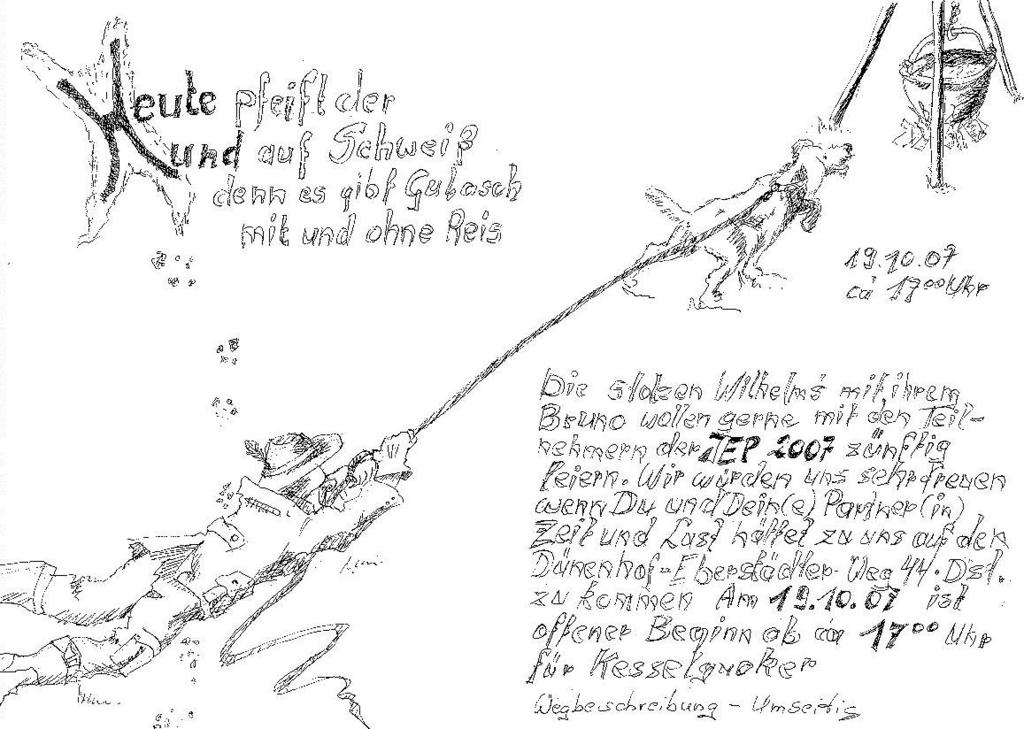 Heute pfeift der
Hund auf Schweiß
denn es gibt Gulasch
mit und ohne Reis
19.10.07
ca 17⁰⁰ Uhr
Die stolzen Wilhelms mit ihrem
Bruno wollen gerne mit den Teil-
nehmern der JEP 2007 zünftig
feiern. Wir würden uns sehr freuen
wenn Du und Dein(e) Partner(in)
Zeit und Lust hättet zu uns auf den
Dünenhof-Eberstädter-Weg 44. Dst.
zu kommen Am 19.10.07 ist
offener Beginn ab ca 17⁰⁰ Uhr
für Kesselgucker
Wegbeschreibung - Umseitig